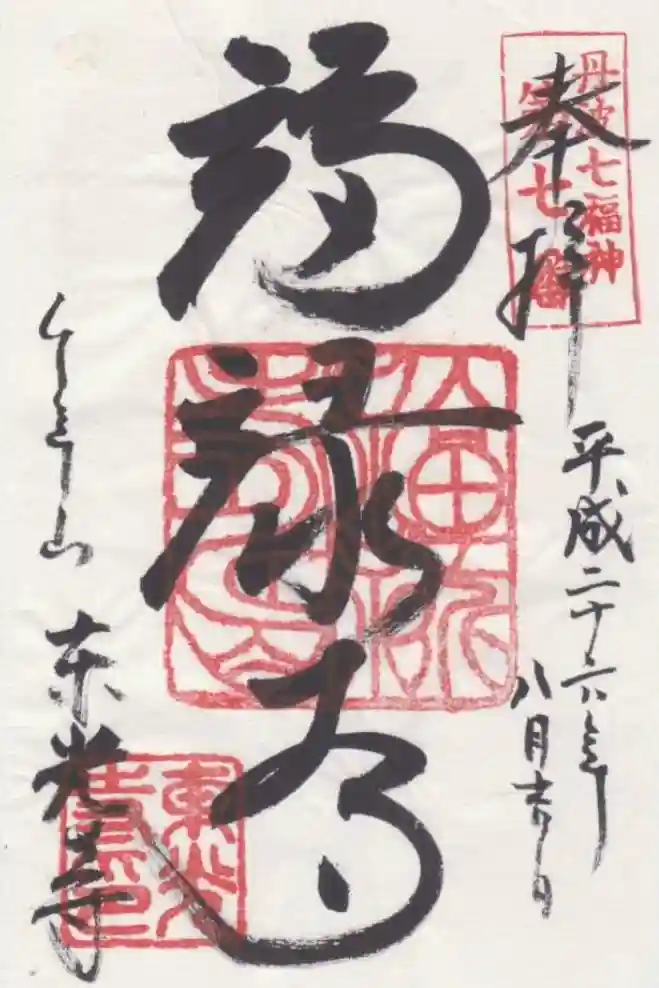 丹波七福神
第七番
奉拝
平成二十六年
八月吉日
福禄寿
山 東光寺
東光
寺印